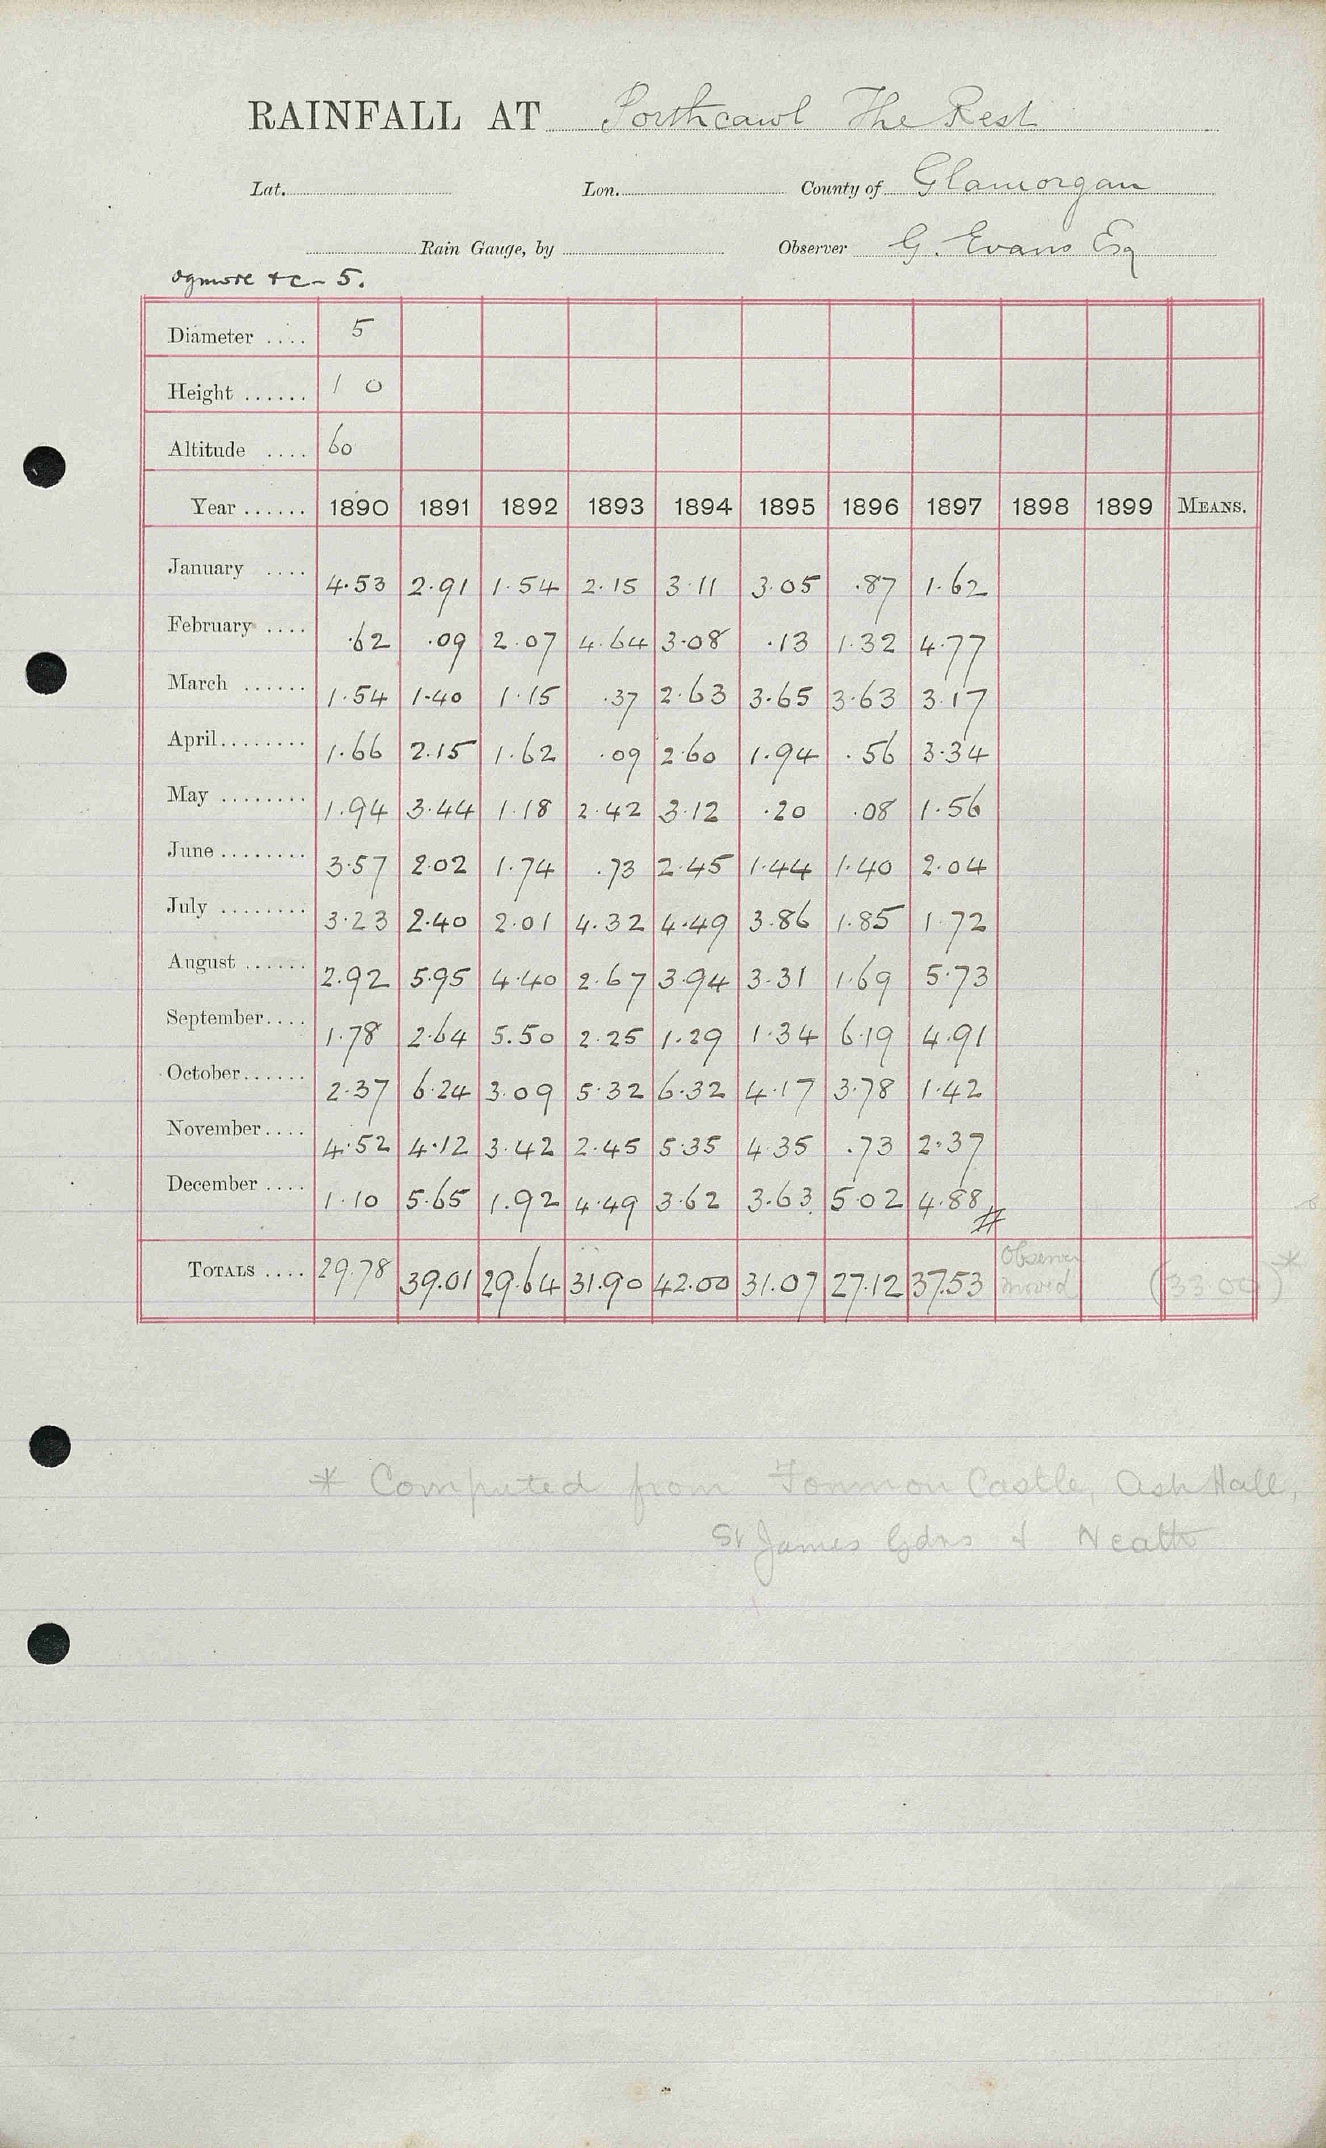 RAINFALL AT Porthcawl The Rest
Lat. Lon. County of Glamorgan
Rain Gauge, by Observer G. Evans Esq
Ogmore &c - 5.
Diameter .... 5
Height ...... 1 0
Altitude .... 60
Year ...... 1890 1891 1892 1893 1894 1895 1896 1897 1898 1899 MEANS.
January .... 4.53 2.91 1.54 2.15 3.11 3.05 .87 1.62
February .... .62 .09 2.07 4.64 3.08 .13 1.32 4.77
March ...... 1.54 1.40 1.15 .37 2.63 3.65 3.63 3.17
April ........ 1.66 2.15 1.62 .09 2.60 1.94 .56 3.34
May ........ 1.94 3.44 1.18 2.42 3.12 .20 .08 1.56
June ........ 3.57 2.02 1.74 .73 2.45 1.44 1.40 2.04
July ........ 3.23 2.40 2.01 4.32 4.49 3.86 1.85 1.72
August ...... 2.92 5.95 4.40 2.67 3.94 3.31 1.69 5.73
September .... 1.78 2.64 5.50 2.25 1.29 1.34 6.19 4.91
October ...... 2.37 6.24 3.09 5.32 6.32 4.17 3.78 1.42
November .... 4.52 4.12 3.42 2.45 5.35 4.35 .73 2.37
December .... 1.10 5.65 1.92 4.49 3.62 3.63 5.02 4.88 #
TOTALS .... 29.78 39.01 29.64 31.90 42.00 31.07 27.12 37.53 Observer moved (33.00)*
* Computed from Fonmon Castle, Ash Hall,
St James Gdns & Neath